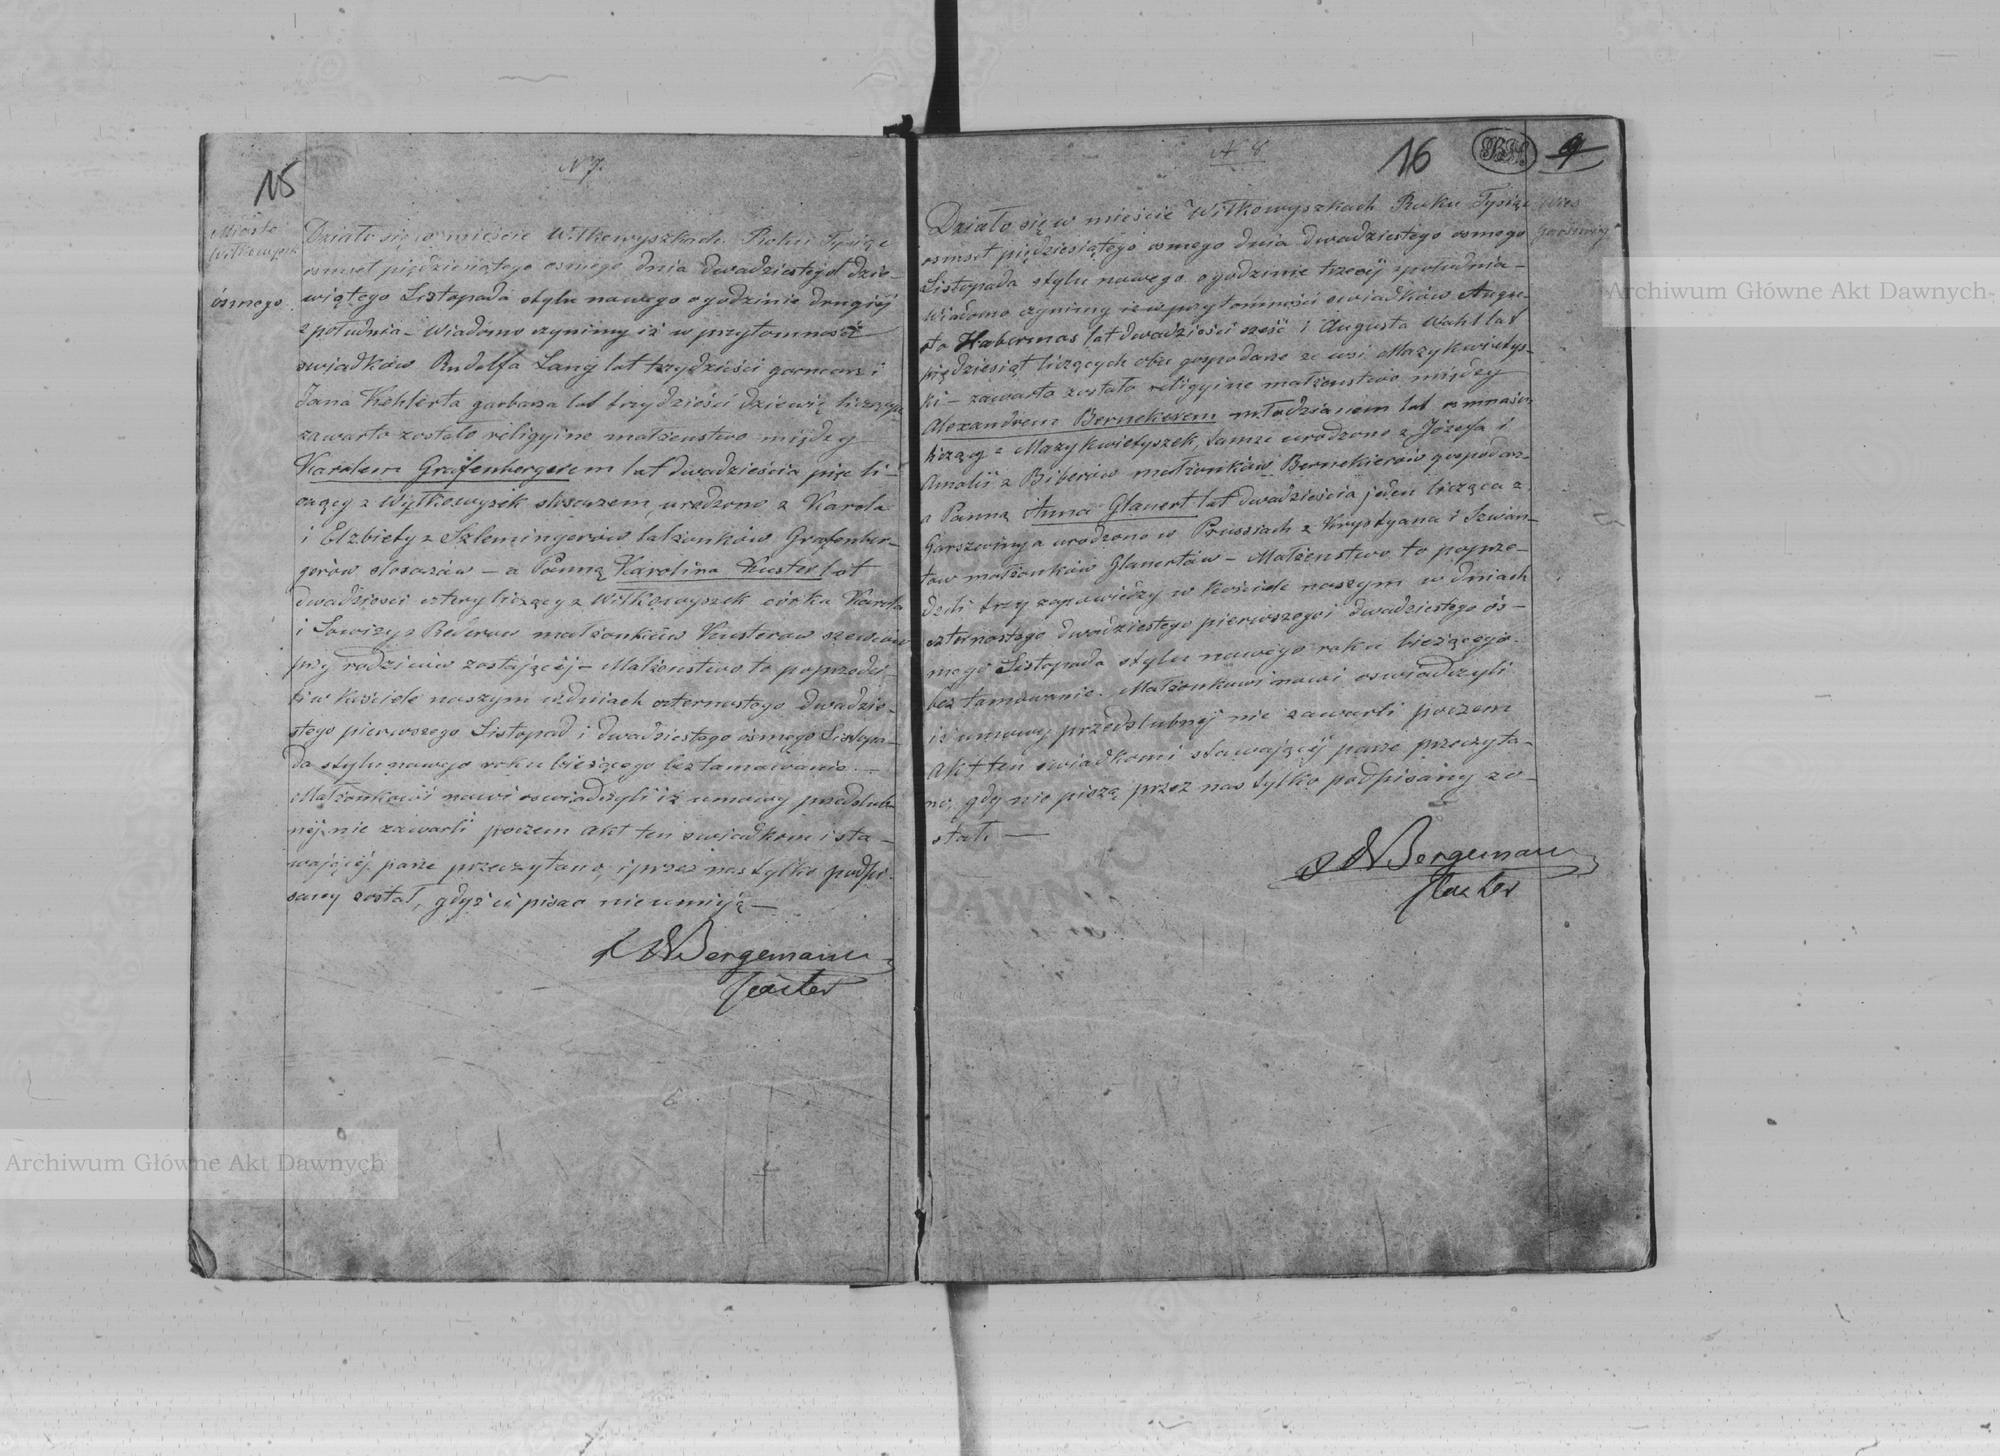 15
N 7.
Miasto
Wilkowyszk
ósmego.
Działo się w mieście Wilkowyszkach Roku Tysiąc
osmset piędziesiątego osmego dnia dwadziestego dzie-
wiątego Listopada stylu nowego o godzinie drugiéj
z południa – Wiadomo czynimy iż w przytomność
swiadków Rudolfa Lang lat trzydzieści garncarz i
Jana Kehlerta garbarza lat trzydzieści dziewię liczących
zawarto zostało religyine małżenstwo między
Karolem Grafenbergerem lat dwadzieścia pięc li-
czący z Wyłkowyszek slosarzem, urodzono z Karola
i Elzbiety z Szlemingerów małzonków Grafenber-
gerów slosarzów – a Panną Karolina Kuster lat
dwadziesci cztery liczący z Wiłkowyszek córka Karola
i Lowizy z Rederow małzonków Kusterow szewców
przy rodziców zostającéj – Małzenstwo to poprzedzi-
li w Kościele naszym w dniach czternastego dwadzie-
stego pierwszego Listopad i dwadziestego ósmego Listopa-
da stylu nowego roku bieżącego bez tamowanie. –
Małzonkowi nowi oswiadczyli iż umowy przedslub-
néj nie zawarli poczem Akt ten swiadkom i sta-
wającéj parze przeczytano, i przez nas tylko podpi-
sany został, gdyż ci pisac nie umiją –
Bergemann
Pastor
N 8
16
9
Wies
Garszwiny
Działo się w mieście Wiłkowyszkach Roku Tysiąc
osmset pięździesiątego osmego dnia dwadziestego osmego
Listopada stylu nowego o godzinie trzeciéj z południa –
Wiadomo czynimy iż w przytomności swiadków Augu-
sta Habermas lat dwadzieści sześć i Augusta Wahl lat
pięździesiąt liczących oba gospodarze ze wsi Mazykwietys-
ki – zawarto zostało religyine małzenstwo między
Alexandrem Bernekerem młodzianem lat osmnaście
liczący z Mazykwietyszek, tamze urodzono z Józefa i
Amalii z Biberów małzonków Bernekierów gospodarz-
a Panną Anna Glauert lat dwadzieścia jeden licząca z
Garszwiny a urodzono w Prussiach z Krystyana i Szwan-
tow małzonków Glauertów – Małzenstwo to poprze-
dzili trzy zapowiedzy w kościele naszym w dniach
czternastego dwadziestego pierwszego i dwadziestego ós-
mego Listopada stylu nowego roku bieżącego
bez tamowanie. Małzonkowi nowi oswiadczyli
iż umowy przedslubnéj nie zawarli poczem
Akt ten swiadkomi stawającéj parze przeczyta-
no, gdy nie piszą, przez nas tylko podpisany zo-
stał. –
Bergemann
Pastor
Archiwum Główne Akt Dawnych
Archiwum Główne Akt Dawnych